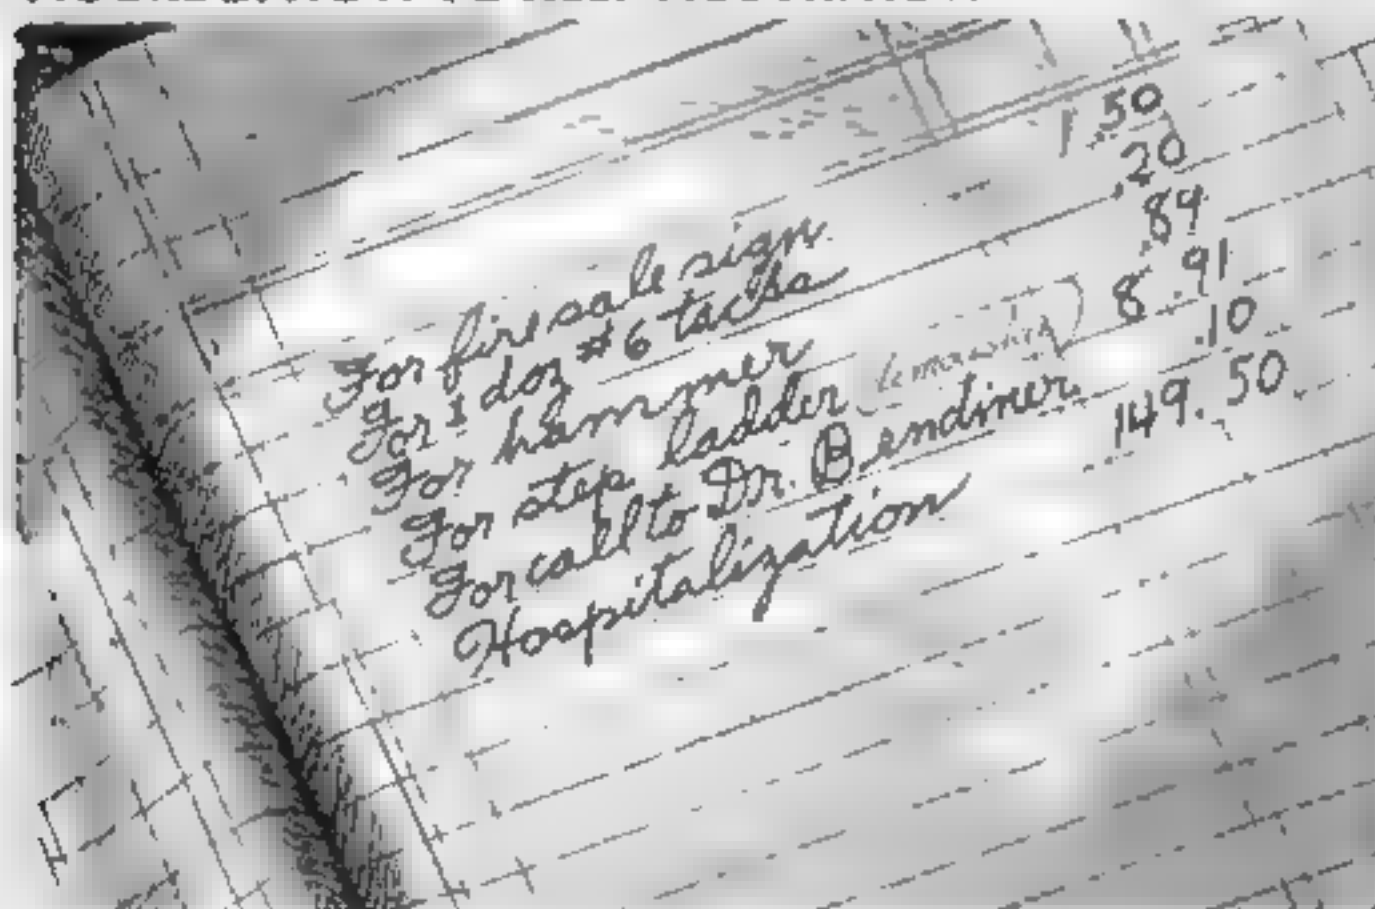 For fire sale sign 1.50
For 1 doz #6 tacks .20
For hammer .89
For step ladder 8.91
For call to Dr. Bendiner .10
Hospitalization 149.50